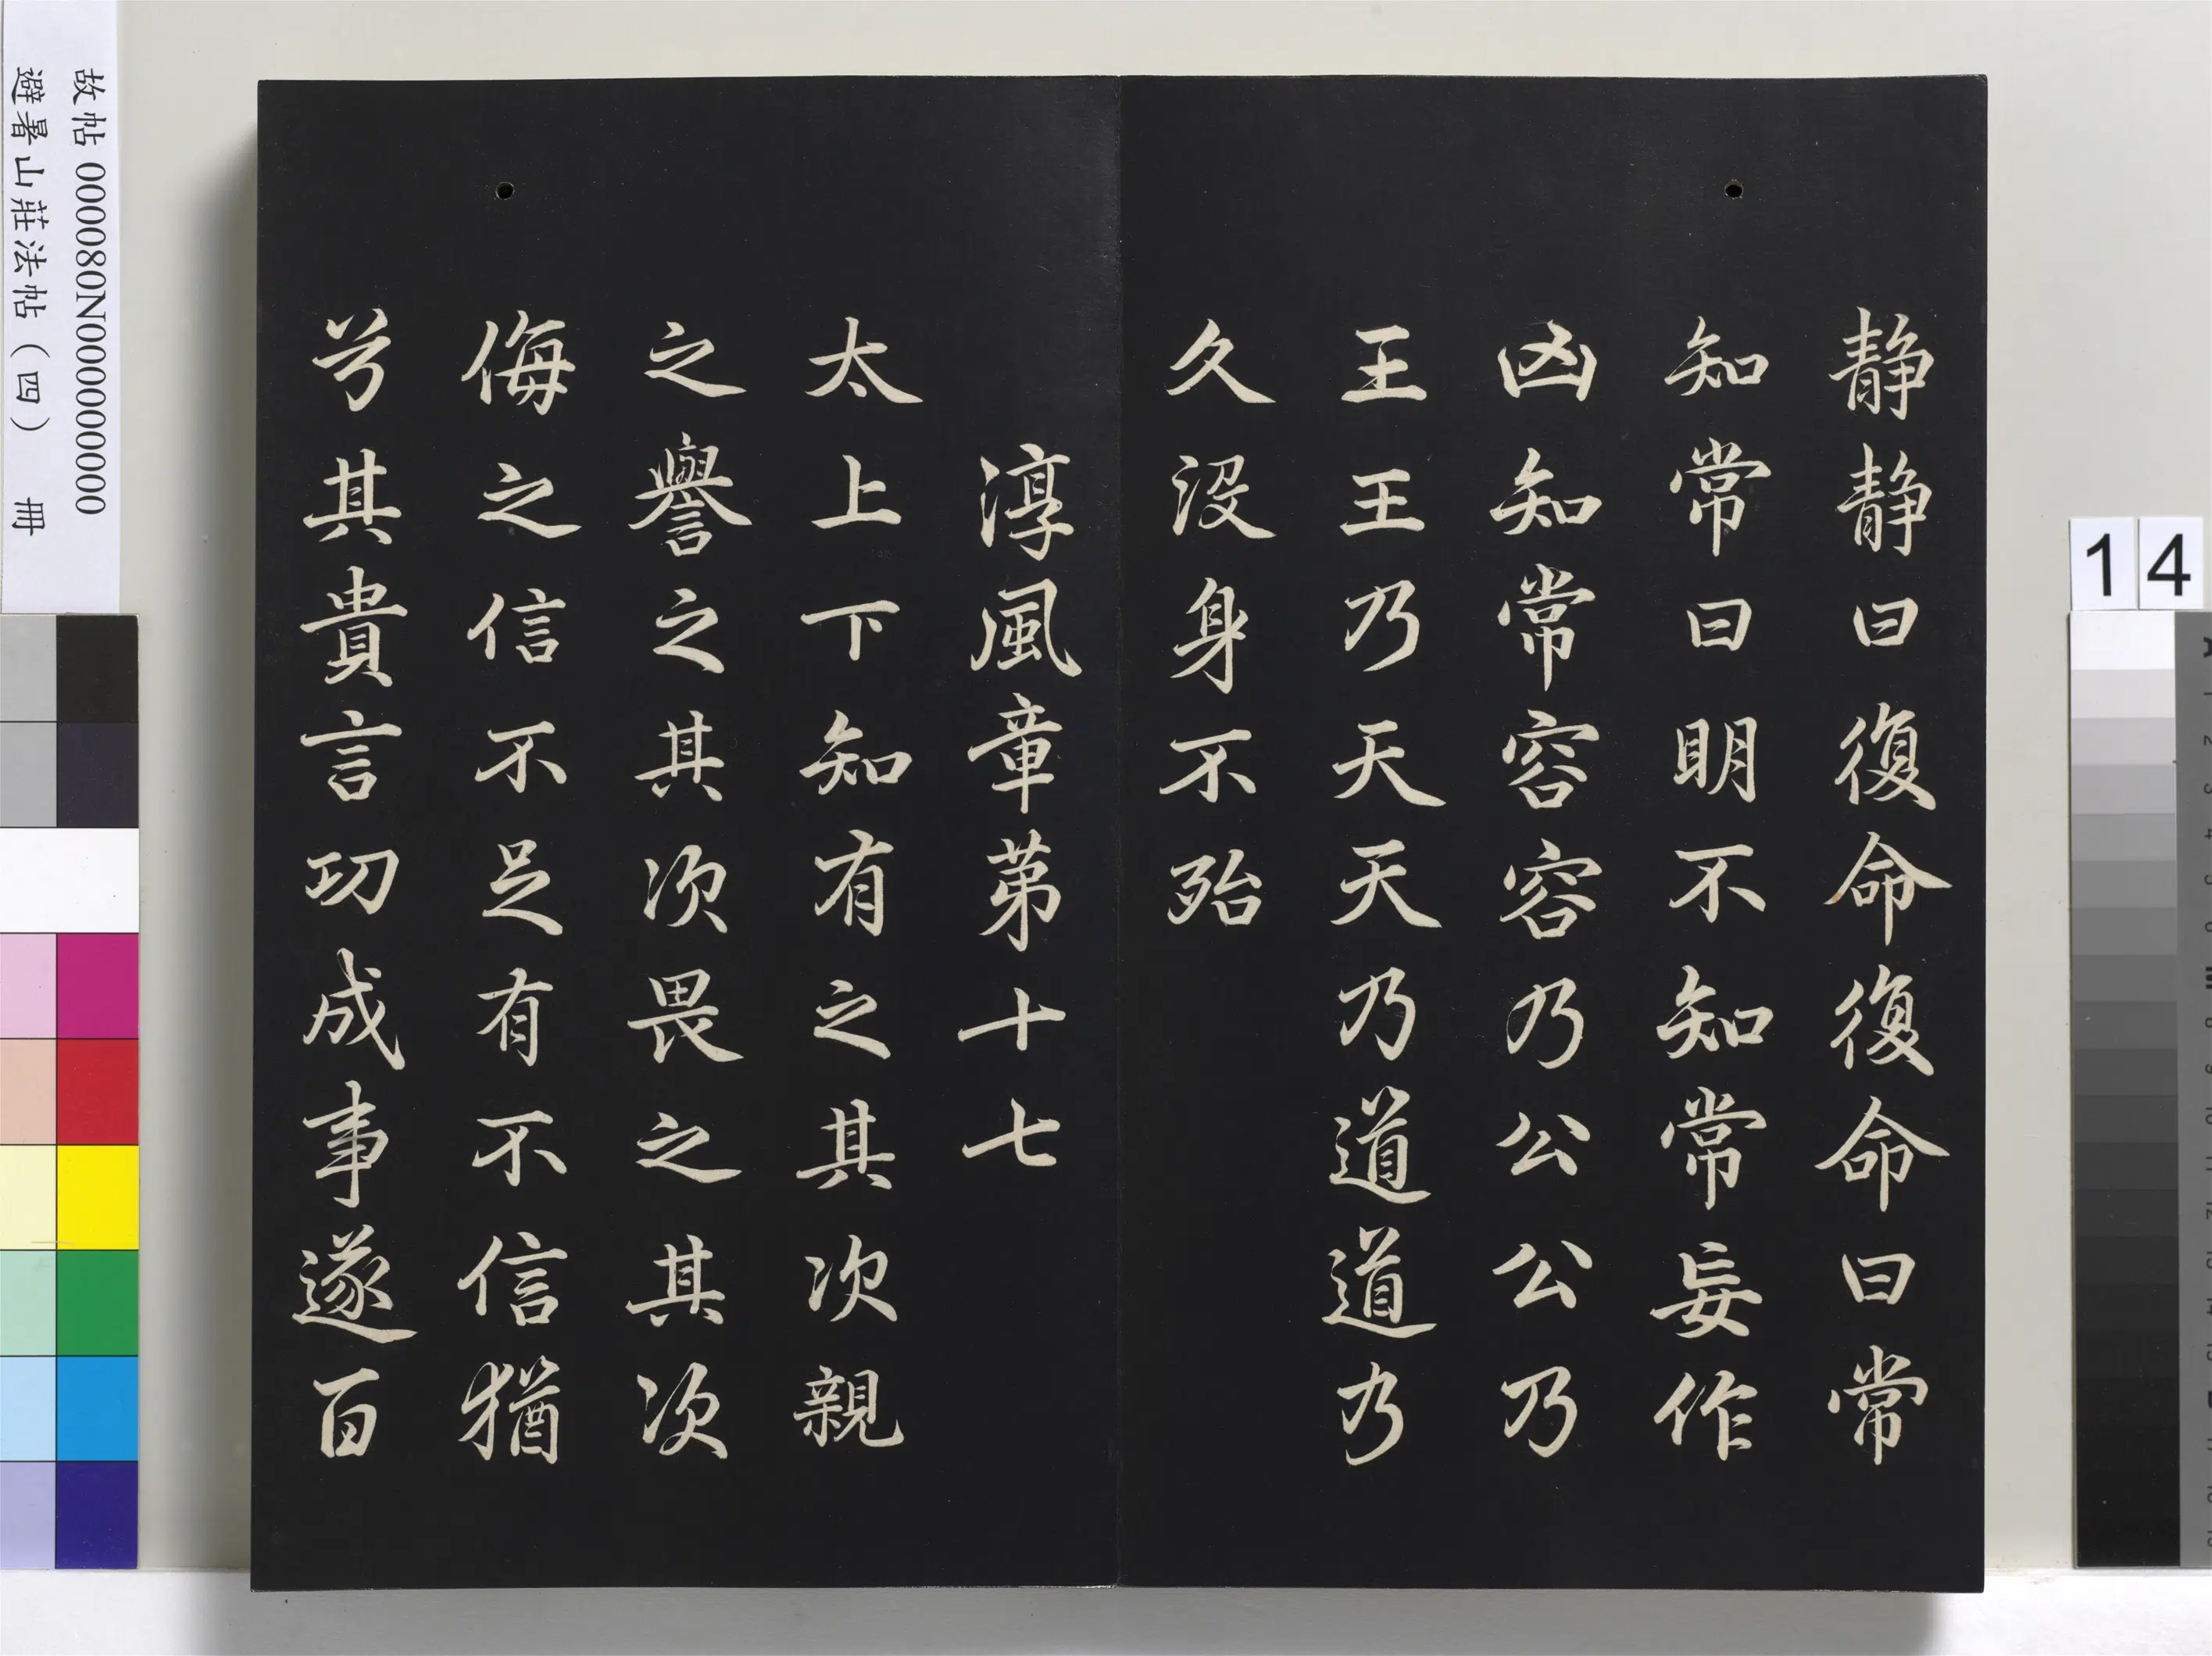 靜靜曰復命復命曰常
知常曰明不知常妄作
凶知常容容乃公公乃
王王乃天天乃道道乃
久沒身不殆
淳風章第十七
太上下知有之其次親
之譽之其次畏之其次
侮之信不足有不信猶
兮其貴言功成事遂百
故帖 000080N000000000
避暑山莊法帖（四） 冊
14